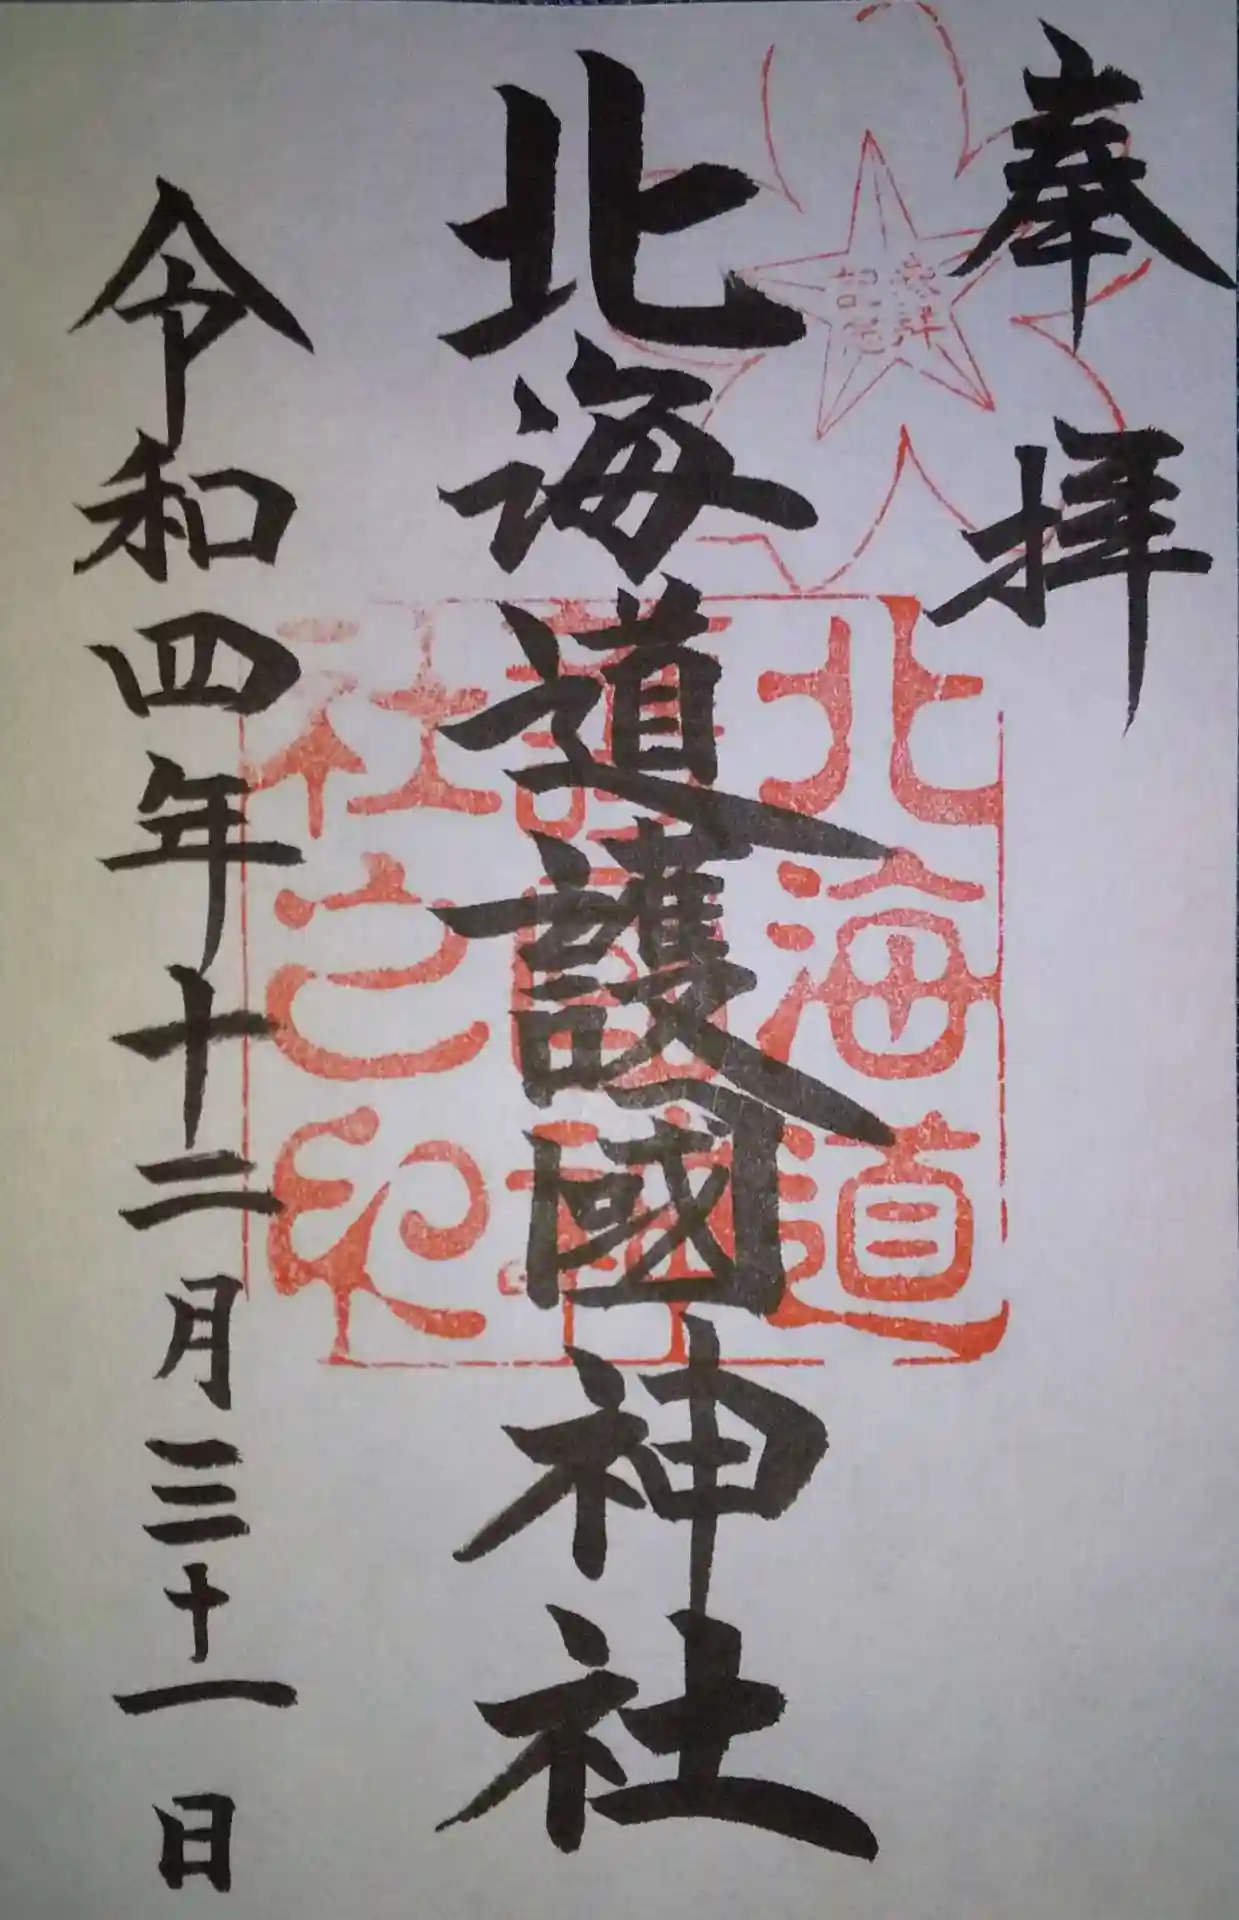 奉拝
参拝
記念
北海道護國神社
北海道
護國神
社之印
令和四年十二月三十一日